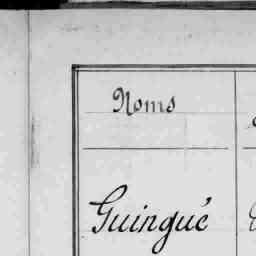 Noms
Guingué